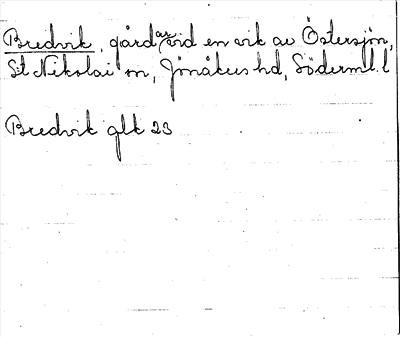 Bredvik, gårdar vid en vik av Östersjön,
St Nikolai sn, Jönåkers hd, Söderml. l
Bredvik glk 23